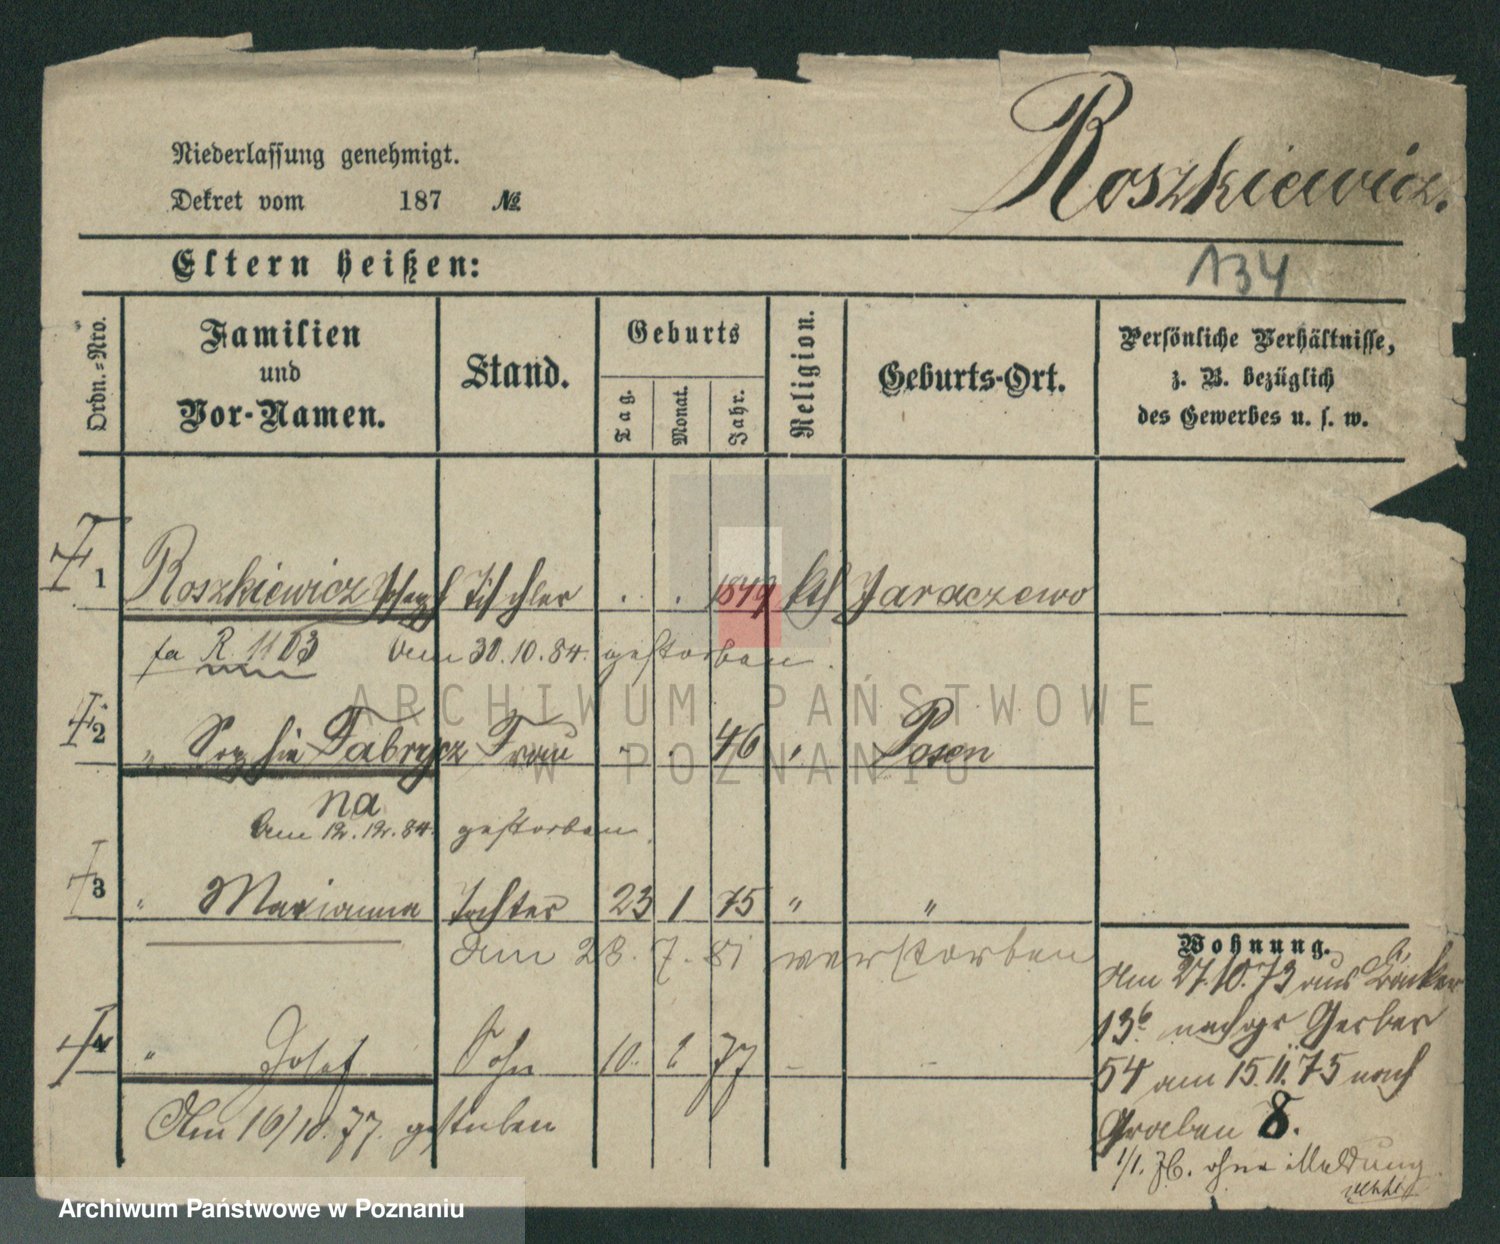 Niederlassung genehmigt.
Dekret vom 187 №
Roszkiewicz.
Eltern heißen:
134
Ordn.=Nro.
Familien und Vor-Namen.
Stand.
Geburts
Tag.
Monat.
Jahr.
Religion.
Geburts-Ort.
Persönliche Verhältnisse,
z. B. bezüglich
des Gewerbes u. s. w.
1 Roszkiewicz Joseph Tischler . . 1849 kth Jaraczewo
fa R. 1103 Am 30.10.84. gestorben.
2 " Sophia Fabrycz Frau . . 46 " Posen
na
Am 12.12.84. gestorben.
3 " Marianna Tochter 23 1 75 " "
Am 28.7.81 verstorben
4 " Josef Sohn 10. 2 77 – –
Am 16/10.77. gestorben
Wohnung.
Am 27.10.73 aus
136 nach Gerber
54 am 15.11.75 nach
Graben 8.
1/1. 76. ohne Meldung
ARCHIWUM PAŃSTWOWE
W POZNANIU
Archiwum Państwowe w Poznaniu